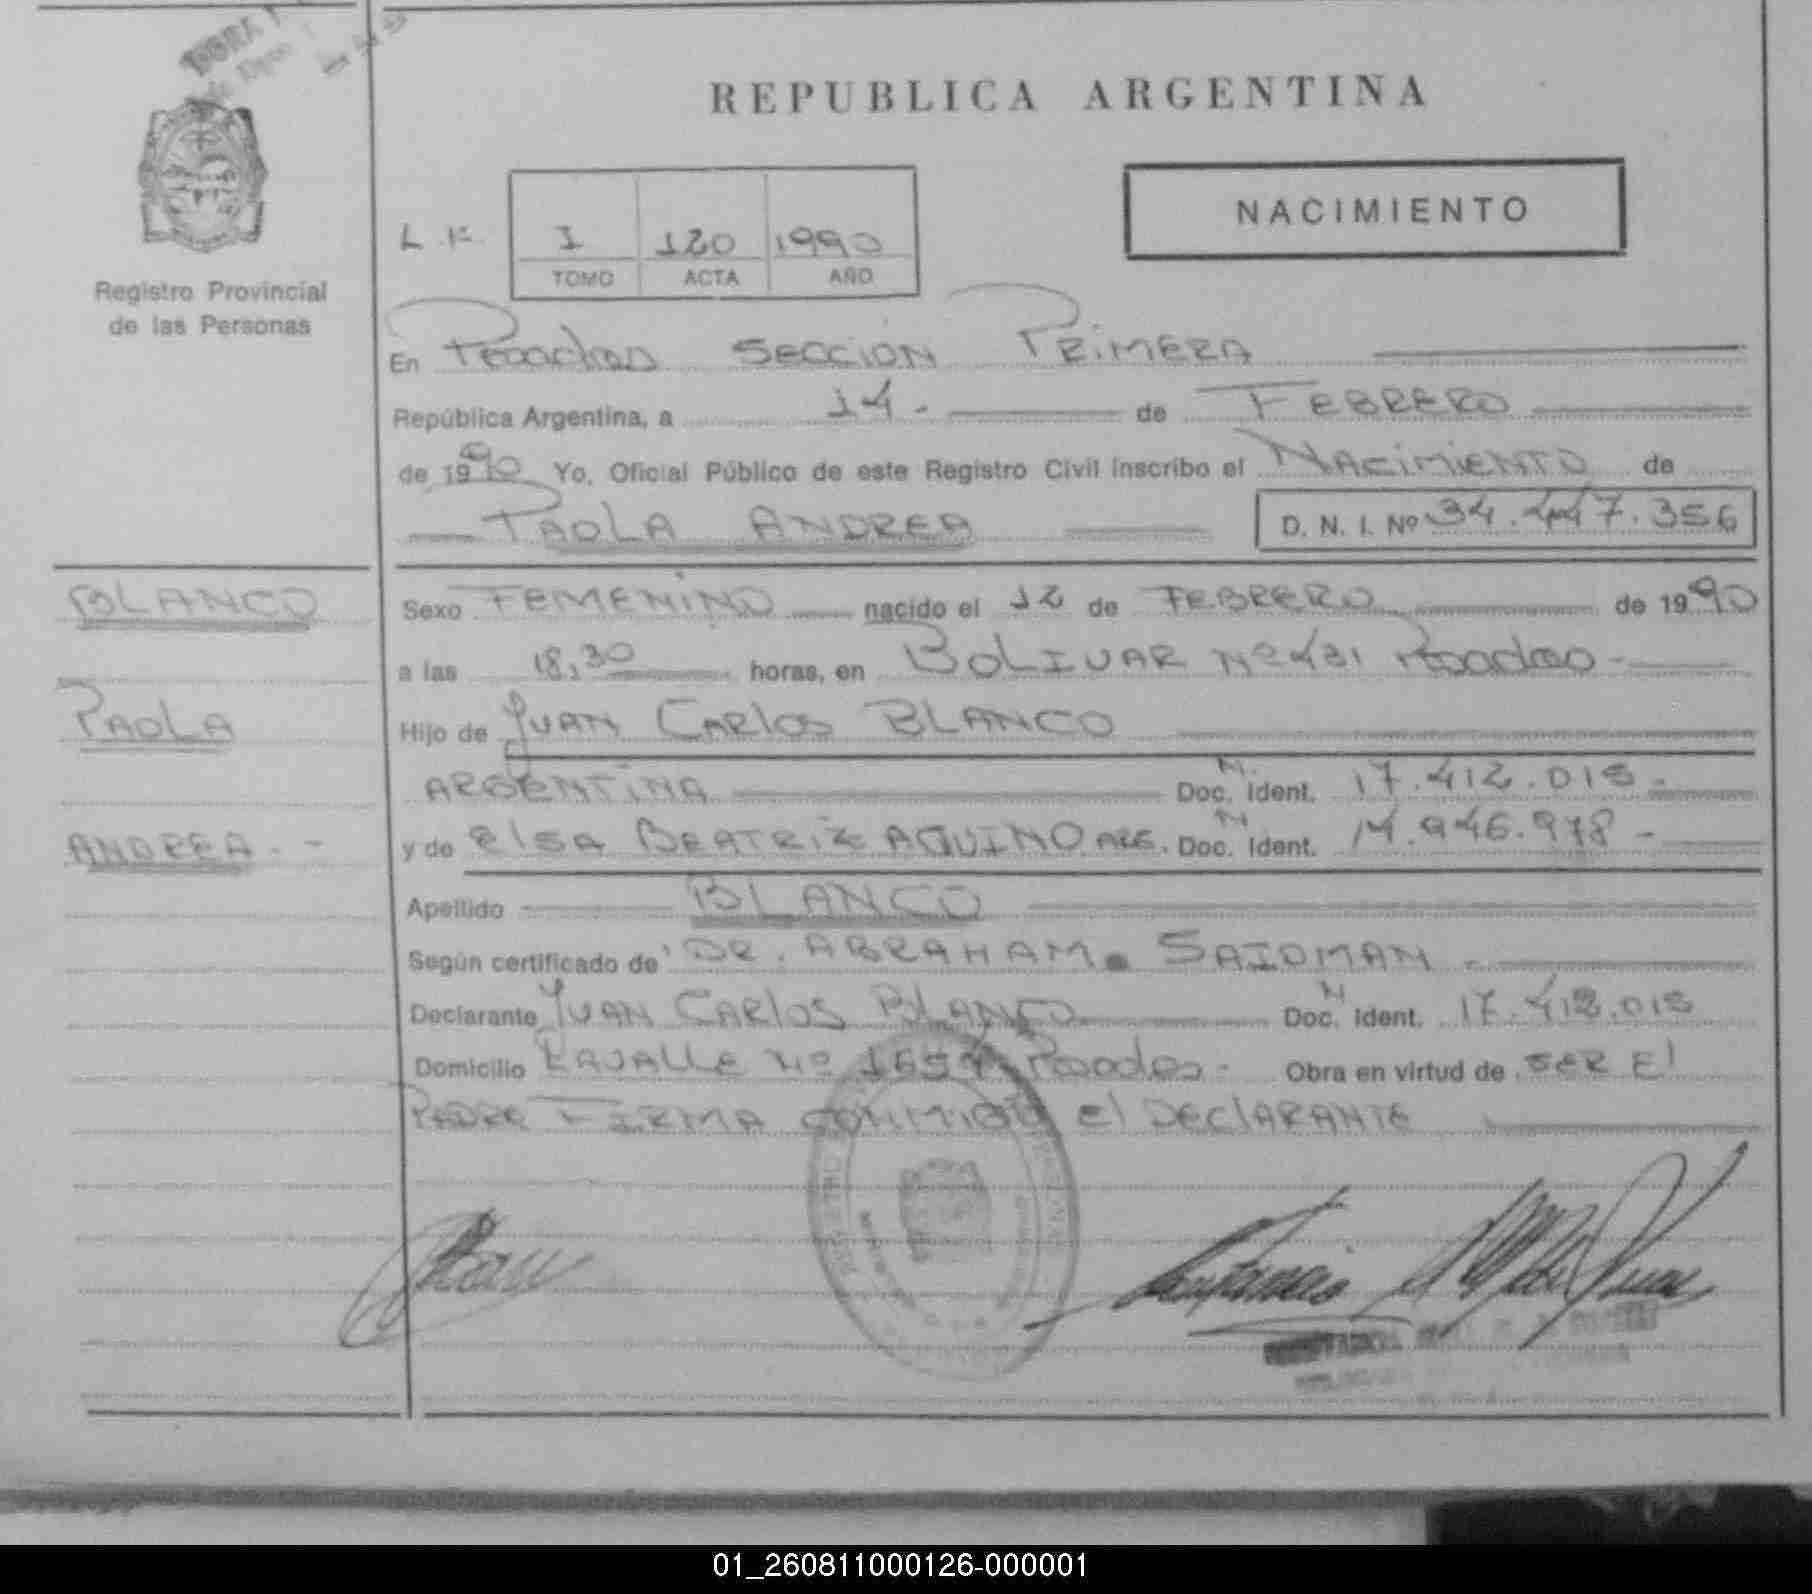 REPUBLICA ARGENTINA
NACIMIENTO
L.F. I 120 1990
TOMO ACTA AÑO
Registro Provincial
de las Personas
En Posadas SECCION PRIMERA
República Argentina, a 14.- de FEBRERO
de 1990 Yo, Oficial Público de este Registro Civil inscribo el NACIMIENTO de
PAOLA ANDREA D. N. I. Nº 34.447.356
BLANCO
PAOLA
ANDREA.-
Sexo FEMENINO nacido el 12 de FEBRERO de 1990
a las 18,30 horas, en BOLIVAR Nº 431 Posadas-
Hijo de JUAN CARLOS BLANCO
ARGENTINA Doc. N. Ident. 17.412.015-
y de ELSA BEATRIZ AQUINO ARG. Doc. N Ident. 14.946.978-
Apellido BLANCO
Según certificado de DR. ABRAHAM SAIDMAN-
Declarante JUAN CARLOS BLANCO Doc. N Ident. 17.412.015
Domicilio LAVALLE Nº Posadas- Obra en virtud de SER El
PADRE FIRMA CONMIGO El DEClARANTE
01_260811000126-000001